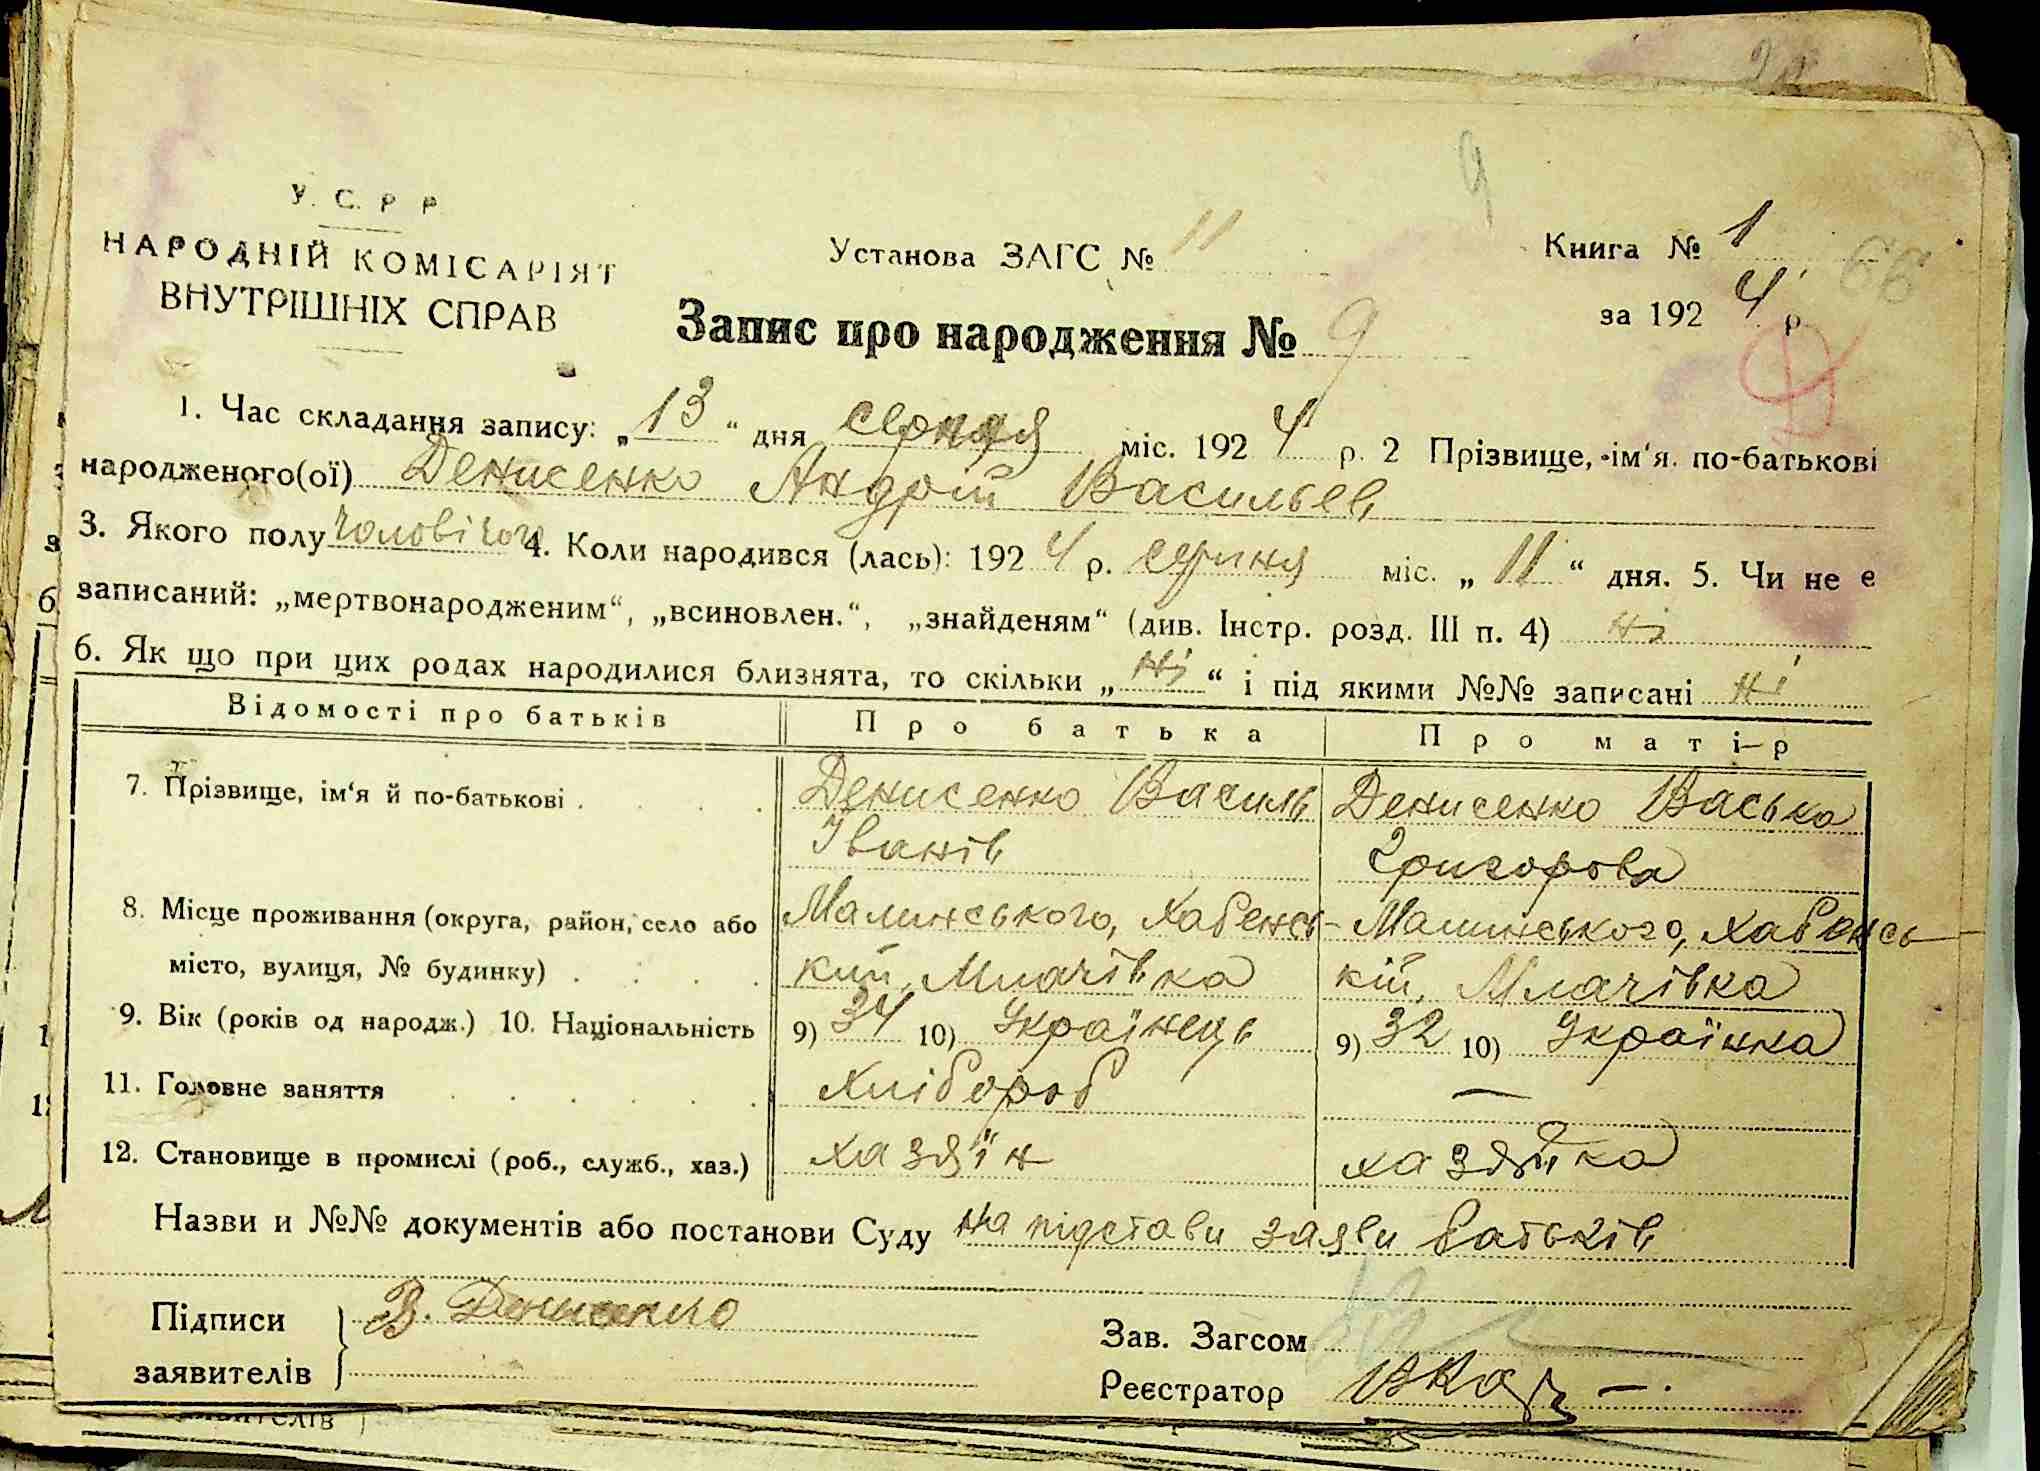 У. С. Р Р
НАРОДНІЙ КОМІСАРІЯТ
ВНУТРІШНІХ СПРАВ
Установа ЗАГС № 11
9
Книга № 1
за 192 4 р
66
Запис про народження № 9
1. Час складання запису: „ 13 “ дня серпня міс. 192 4 р. 2 Прізвище, ім‘я. по-батькові
народженого(ої) Денисенко Андрій Васильев
3. Якого полу чоловічого 4. Коли народився (лась): 192 4 р. серпня міс. „ 11 “ дня. 5. Чи не є
записаний: „мертвонародженим“, „всиновлен.“, „знайденям“ (див. Інстр. розд. III п. 4) ні
6. Як що при цих родах народилися близнята, то скільки „ ні “ і під якими №№ записані ні
Відомості про батьків Про батька Про матір
7. Прізвище, ім‘я й по-батькові . Денисенко Василь Денисенко Васька
Іванів Григорова
8. Місце проживання (округа, район, село або Малинського, Хабенсь- Малинського, Хабенсь-
місто, вулиця, № будинку) . кий, Млачівка кій, Млачівка
9. Вік (років од народж.) 10. Національність 9) 34 10) Українець 9) 32 10) Українка
11. Головне заняття Хлібороб —
12. Становище в промислі (роб., служб., хаз.) хазяїн хазяйка
Назви и №№ документів або постанови Суду на підстави заяви батьків
Підписи В. Денисенко
заявителів
Зав. Загсом
Реєстратор